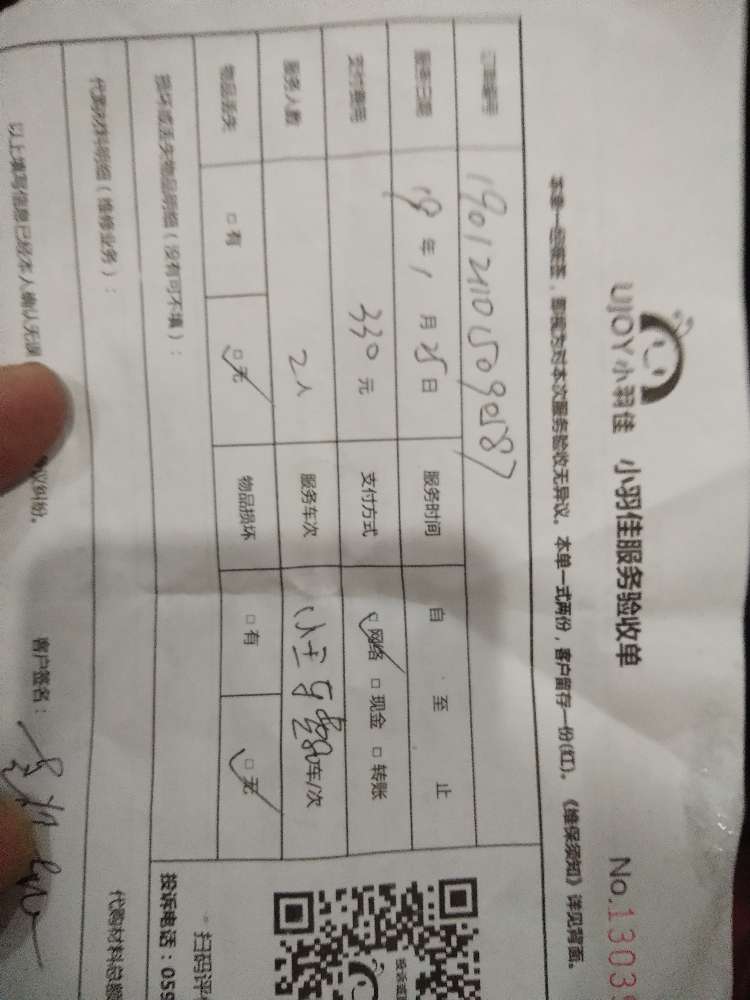 UJOY小羽佳 小羽佳服务验收单
No.1303
本单一经签签，即视为对本次服务验收无异议。本单一式两份，客户留存一份(红)。《维保须知》详见背面。
订单编号
服务日期 19 年 1 月 25 日 服务时间 自 至 止
支付费用 330 元 支付方式 ☑ 网络 □ 现金 □ 转账
服务人数 2 人 服务车次 车/次
物品丢失 □ 有 ☑ 无 物品损坏 □ 有 ☑ 无
损坏或丢失物品明细（没有可不填）：
代购材料明细（维修业务）：
代购材料总额
以上填写信息已经本人确认无误
议纠纷。
客户签名：
扫码评
投诉电话：059